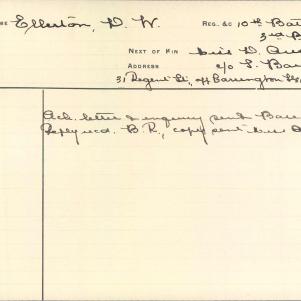 Ellerton, D. W. REG. &C 10th Bat
3rd B
NEXT OF KIN Miss D.
ADDRESS c/o S. Bar
31 Regent St, off Barrington
Ack. letter & enquiry sent Bar
Reply recd. B.R., copy sent Miss